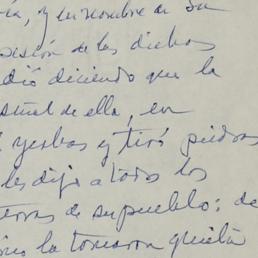 ia, y en nombre de Su
sesion de las dichas
dió diciendo que la
señal de ella, en
yerbas y tiró piedras
les dijo a todos los
tierras de su pueblo: de
la tomaron quieta